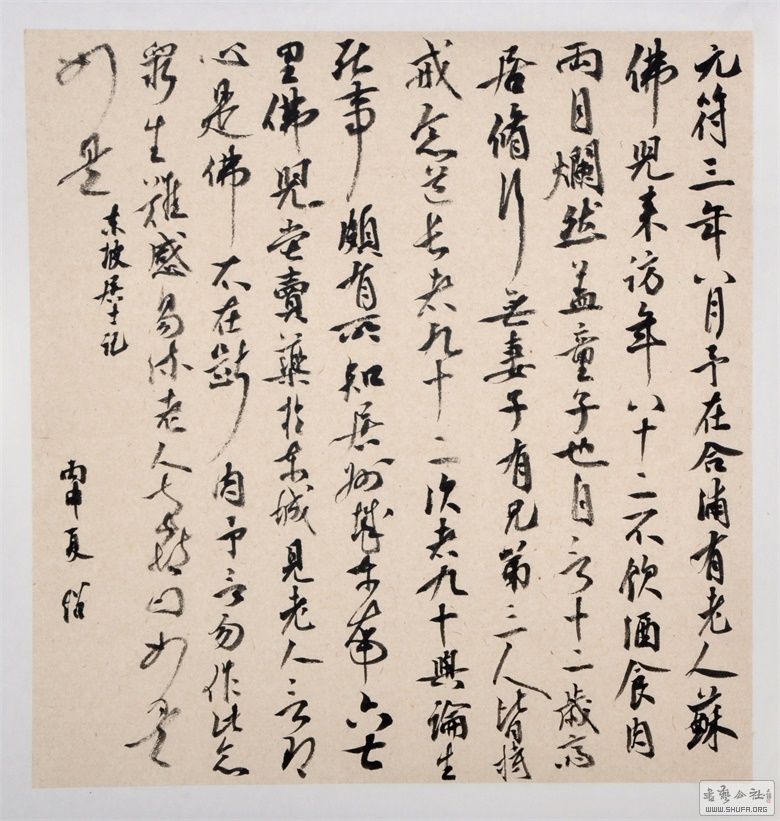 元符三年八月予在合浦有老人蘇
佛兒来訪年八十二不飲酒食肉
兩目爛然盖童子也自言十二歲齋
居脩行無妻子有兄弟三人皆持
戒念道長者九十二次者九十與論生
死事頗有所知居州城东南六七
里佛兒嘗賣藥於东城見老人言即
心是佛不在斷肉予言勿作此念
眾生難感易流老人大喜曰如是
如是
东坡居士記
丙申夏
書藝公社
WWW.SHUFA.ORG